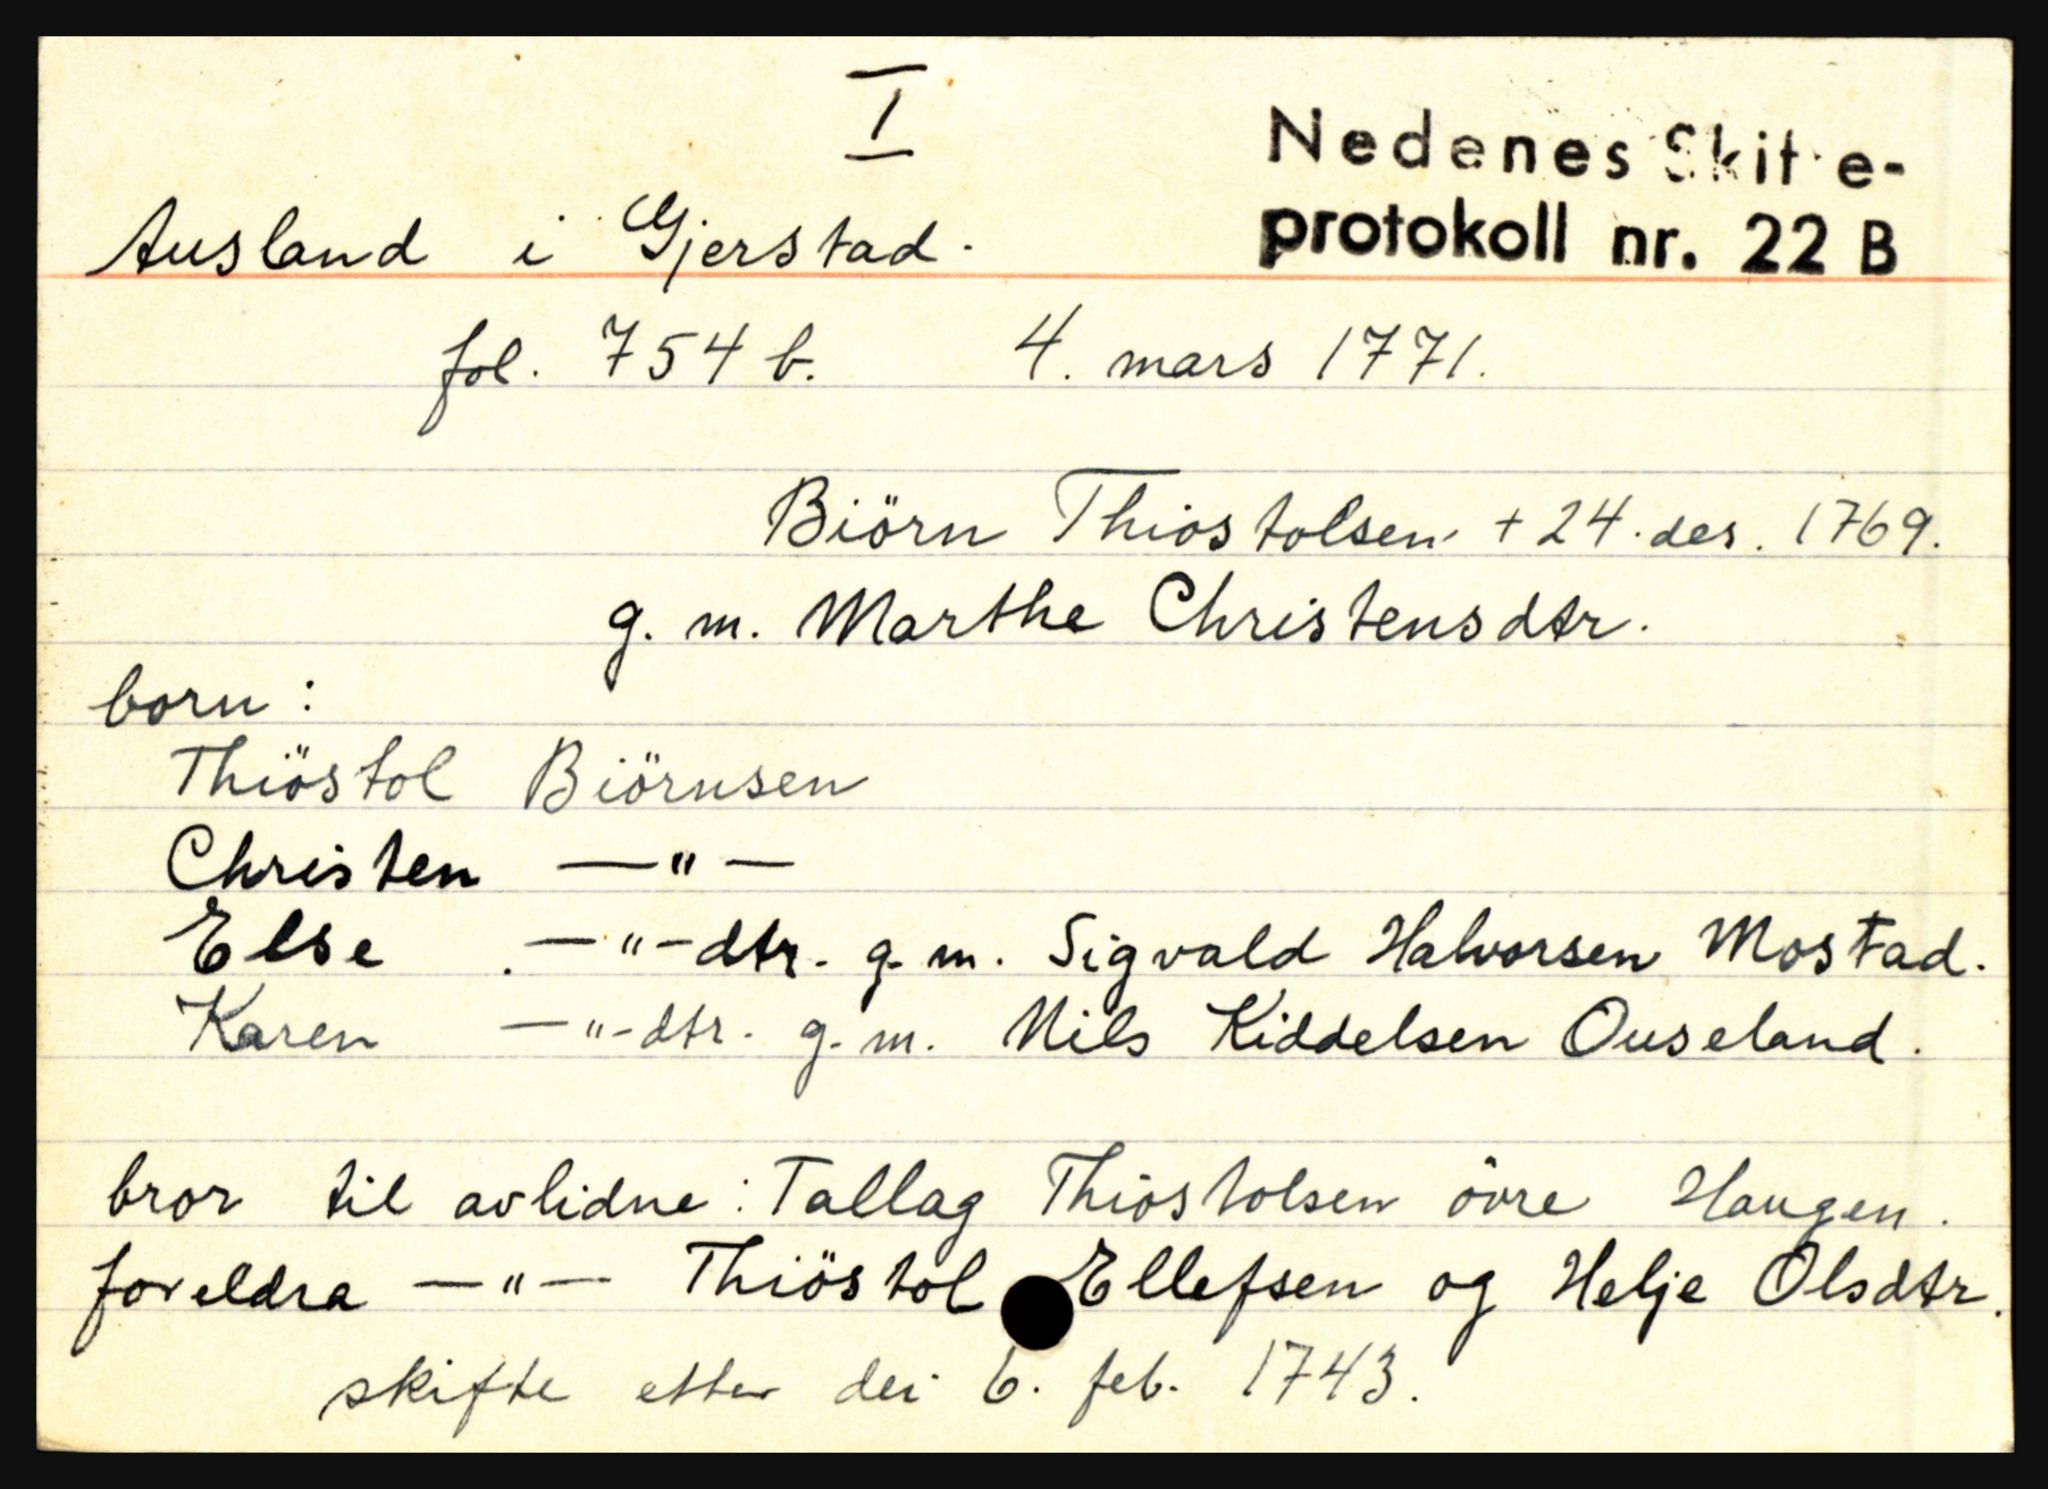 I
Nedenes Skifte-
protokoll nr. 22 B
Ausland i Gjerstad.
fol. 754 b. 4. mars 1771.
Biörn Thiostolsen + 24. des. 1769.
g. m. Marthe Christensdtr.
born:
Thiöstol Biörnsen
Christen —"—
Else —"—dtr. g. m. Sigvald Halvorsen Mostad.
Karen —"—dtr. g. m. Nils Kiddelsen Ouseland.
bror til avlidne: Tallag Thiostolsen övre Haugen.
foreldra —"— Thiöstol Ellefsen og Helje Olsdtr.
skifte etter dei 6. feb. 1743.